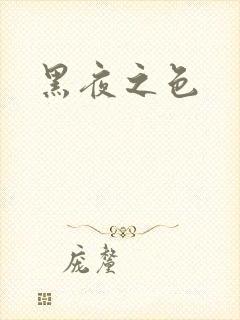 黑夜之色
庞釐